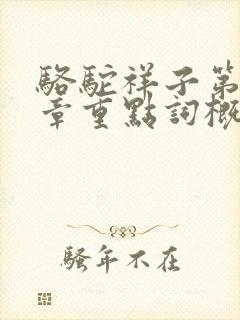 駱駝祥子第
章重點詞概
騷年不在